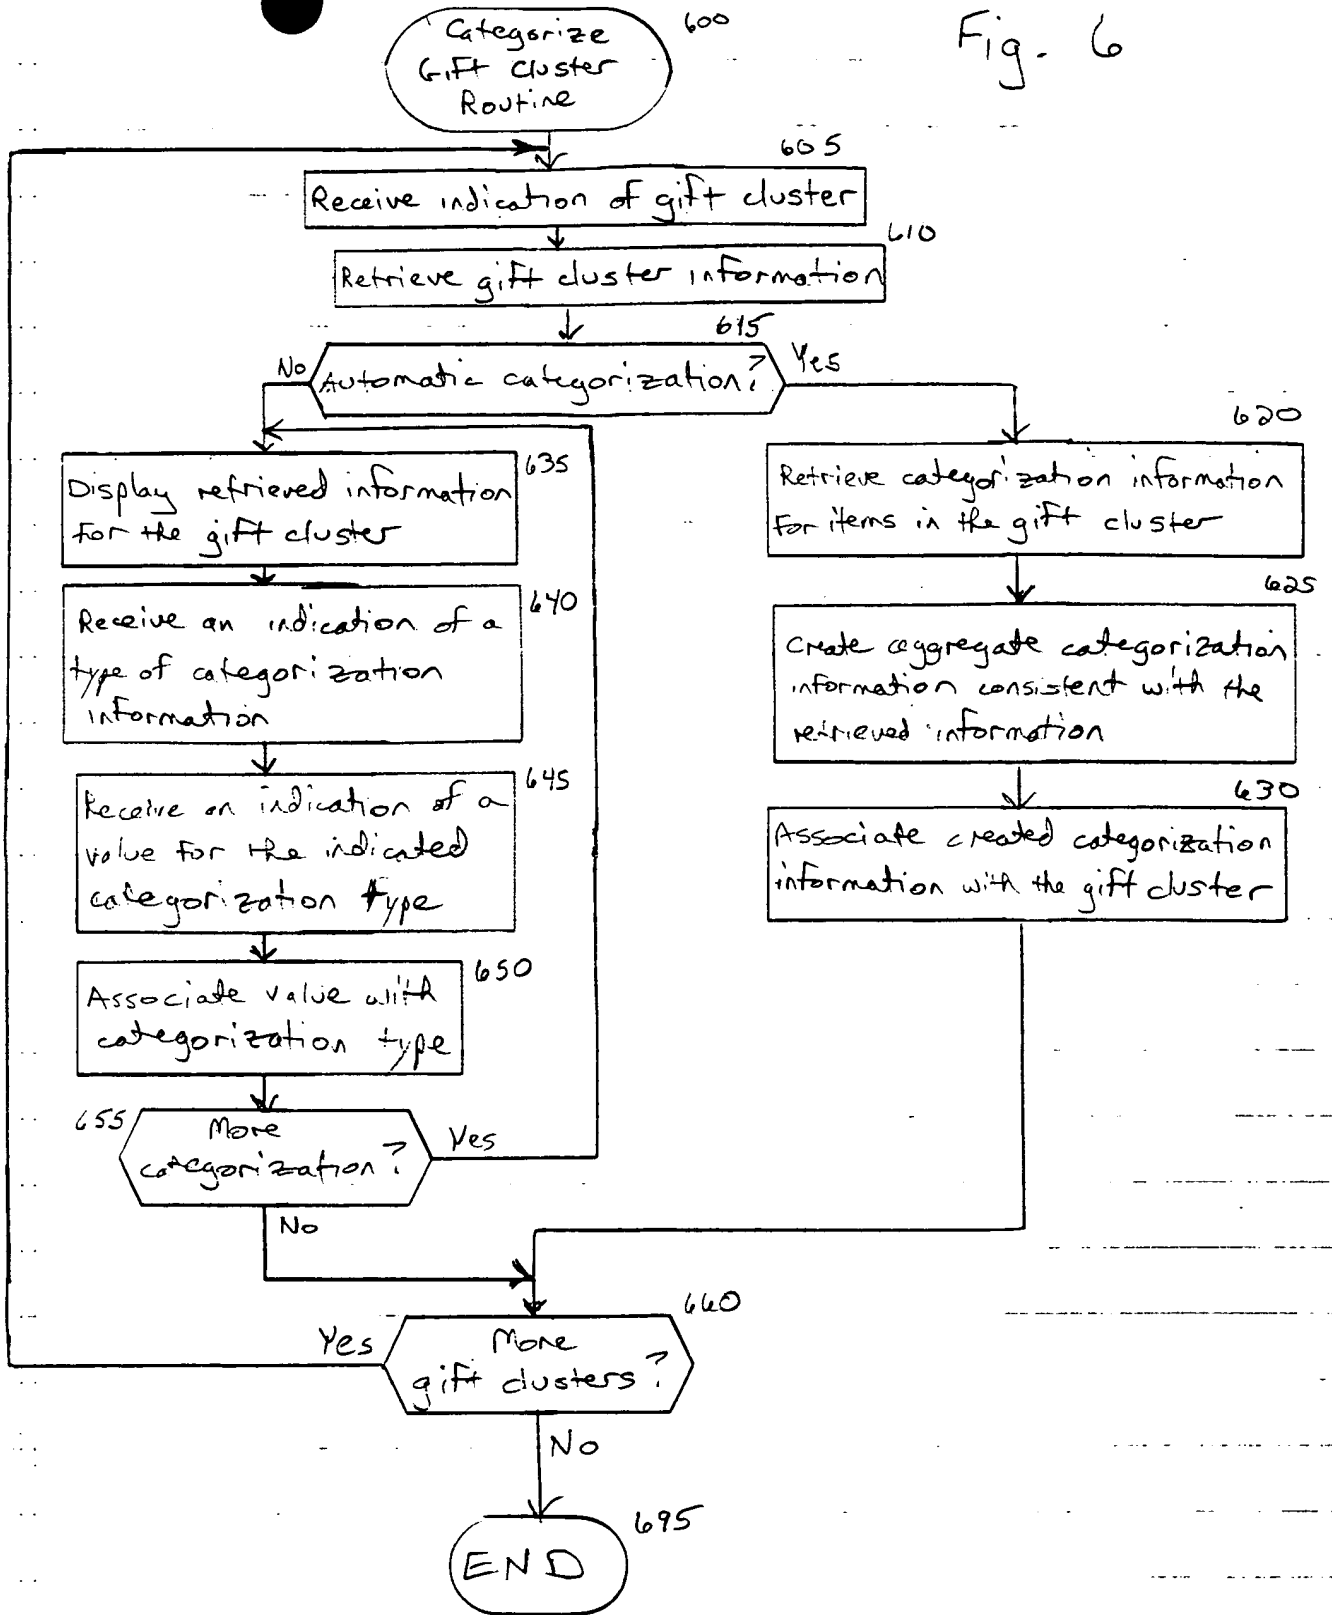 Fig. 6
600
Categorize
Gift Cluster
Routine
605
Receive indication of gift cluster
610
Retrieve gift cluster information
615
Automatic categorization?
No
Yes
635
Display retrieved information
for the gift cluster
640
Receive an indication of a
type of categorization
information
645
Receive an indication of a
value for the indicated
categorization type
650
Associate value with
categorization type
655
More
categorization?
Yes
No
620
Retrieve categorization information
for items in the gift cluster
625
Create aggregate categorization
information consistent with the
retrieved information
630
Associate created categorization
information with the gift cluster
660
More
gift clusters?
Yes
No
695
END